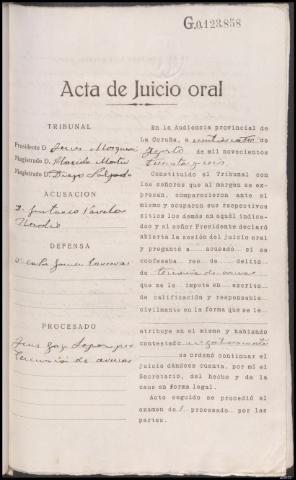 G.0.123.858
Acta de Juicio oral
TRIBUNAL
Presidente D.
Magistrado D.
Magistrado D. Diego Salgado
ACUSACION
D. Gustavo Varela
DEFENSA
PROCESADO
tenencia de armas
En la Audiencia provincial de
La Coruña, a veinticuatro de
Agosto de mil novecientos
treinta y seis
Constituído el Tribunal
con los señores que al margen se ex-
presan, comparecieron ante el
mismo y ocuparon sus respectivos
sitios los demás en aquél indica-
dos y el señor Presidente declaró
abierta la sesión del juicio oral
y preguntó a acusado si se
confesaba reo de delito
de tenencia de armas
que se le imputa en escrito
de calificación y responsable
civilmente en la forma que se le
atribuye en el mismo y habiendo
contestado negativamente
se ordenó continuar el
juicio dándose cuenta, por mí el
Secretario, del hecho y de la
causa en forma legal.
Acto seguido se procedió al
examen del procesado por las
partes.